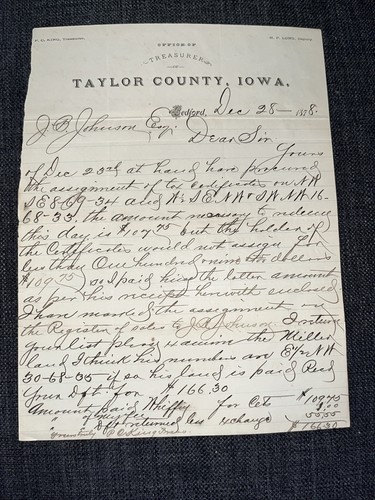 OFFICE OF
TREASURER
TAYLOR COUNTY, IOWA.
Bedford, Dec 28 1878.
J B Johnson Esq.
Dear Sir
Yours
of Dec 23rd at hand have procured
the assignment of tax certificates on NW
SE 8-69-34 and W½ SE NW & SW NW 16-
68-33. the amount necessary to redeem
this day is $107.75 but the holder of
the Certificates would not assign for
less than One hundred nine 75 dollars
$109.75) so I paid him the latter amount
as per his receipt herewith enclosed
I have marked the assignment on
the Register of sales to J B Johnson. I return
your list please examine the Miller
land I think his numbers are NW
30-68-35 if so his land is paid Recd
Your Dft. for $166.30
Amount paid for Cets $109.75
1.00
Dft returned less exchange 55.55
$166.30
Yours truly